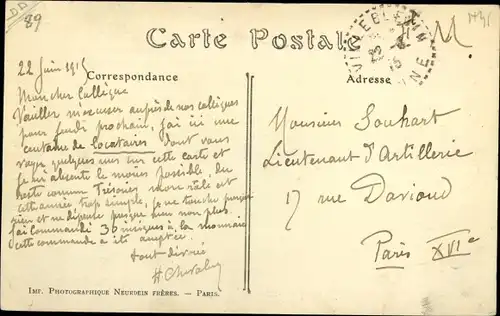 89
Carte Postale
22 Juin 1915
Correspondance
Adresse
F.M.
Mon cher Collègue
Veuillez m'excuser auprès de nos collègues
pour jeudi prochain, j'ai ici une
centaine de locataires dont vous
voyez quelques uns sur cette carte et
je m'absente le moins possible, du
reste comme Trésorier mon rôle est
cette année trop simple, je ne touche presque
rien et ne dépense presque rien non plus.
J'ai commandé 30 insignes à la monnaie
cette commande a été acceptée.
tout dévoué
H Chevalier
Monsieur Souhart
Lieutenant d'Artillerie
17 rue Davioud
Paris XVIe
IMP. PHOTOGRAPHIQUE NEURDEIN FRÈRES. — PARIS.